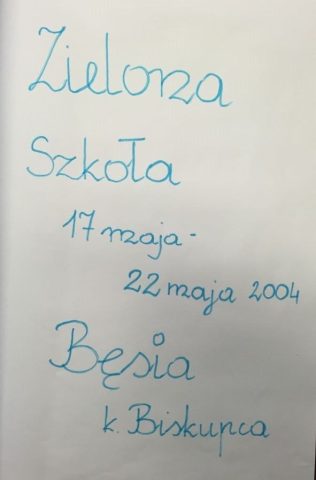 Zielona
Szkoła
17 maja -
22 maja 2004
Bęsia
k. Biskupca